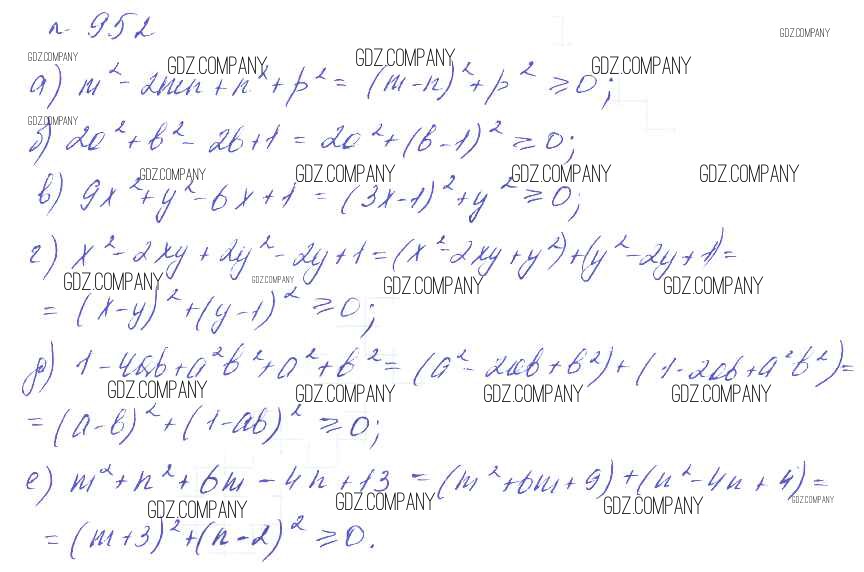 n 952
GDZ.COMPANY
GDZ.COMPANY GDZ.COMPANY GDZ.COMPANY GDZ.COMPANY
а) m² - 2mn + n² + p² = (m-n)² + p² ≥ 0;
GDZ.COMPANY
б) 2a² + b² - 2b + 1 = 2a² + (b-1)² ≥ 0;
GDZ.COMPANY GDZ.COMPANY GDZ.COMPANY GDZ.COMPANY
в) 9x² + y² - 6x + 1 = (3x-1)² + y² ≥ 0;
г) x² - 2xy + 2y² - 2y + 1 = (x² - 2xy + y²) + (y² - 2y + 1) =
GDZ.COMPANY GDZ.COMPANY GDZ.COMPANY GDZ.COMPANY
= (x-y)² + (y-1)² ≥ 0;
д) 1 - 4ab + a²b² + a² + b² = (a² - 2ab + b²) + (1 - 2ab + a²b²) =
GDZ.COMPANY GDZ.COMPANY GDZ.COMPANY GDZ.COMPANY
= (a-b)² + (1-ab)² ≥ 0;
е) m² + n² + 6m - 4n + 13 = (m² + 6m + 9) + (n² - 4n + 4) =
GDZ.COMPANY GDZ.COMPANY GDZ.COMPANY GDZ.COMPANY
= (m+3)² + (n-2)² ≥ 0.